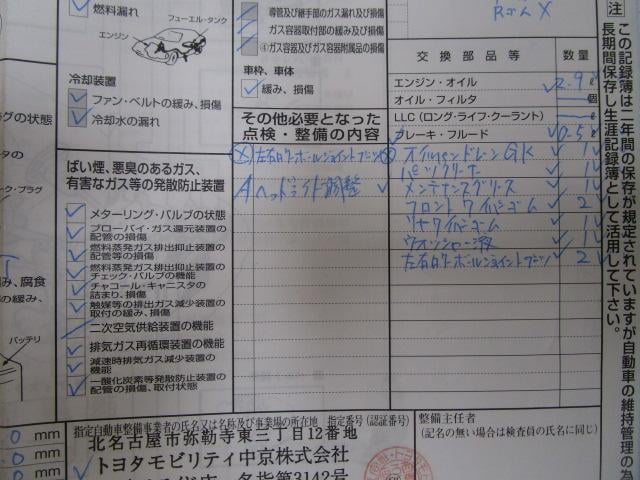 燃料漏れ
フューエル・タンク
エンジン
冷却装置
ファン・ベルトの緩み、損傷
冷却水の漏れ
導管及び継手部のガス漏れ及び損傷
ガス容器取付部の緩み及び損傷
ガス容器及びガス容器附属品の損傷
車枠、車体
緩み、損傷
その他必要となった
点検・整備の内容
左右ロワーボールジョイントブーツ
A ヘッドライト調整
ばい煙、悪臭のあるガス、
有害なガス等の発散防止装置
メターリング・バルブの状態
ブローバイ・ガス還元装置の
配管の損傷
燃料蒸発ガス排出抑止装置の
配管等の損傷
燃料蒸発ガス排出抑止装置の
チェック・バルブの機能
チャコール・キャニスタの
詰まり、損傷
触媒等の排出ガス減少装置の
取付の緩み、損傷
二次空気供給装置の機能
排気ガス再循環装置の機能
減速時排気ガス減少装置の
機能
一酸化炭素等発散防止装置の
配管の損傷、取付状態
交換部品等 数量
エンジン・オイル 2.9 ℓ
オイル・フィルタ 個
LLC (ロング・ライフ・クーラント) ℓ
ブレーキ・フルード 0.5 ℓ
オイルパンドレーンGK 1
パーツクリーナ 1
メンテナンスグリース 1
フロントワイパーゴム 2
リヤワイパーゴム 1
ウオッシャー液 1
左右ロワーボールジョイントブーツ 2
注
この記録簿は二年間の保存が規定されていますが自動車の維持管理の為
長期間保存し生涯記録簿として活用して下さい。
の状態
バッテリ
腐食
mm
mm
mm
指定自動車整備事業者の氏名又は名称及び事業場の所在地 指定番号(認証番号)
北名古屋市弥勒寺東三丁目12番地
トヨタモビリティ中京株式会社
名指第3142号
整備主任者
(記名の無い場合は検査員の氏名に同じ)